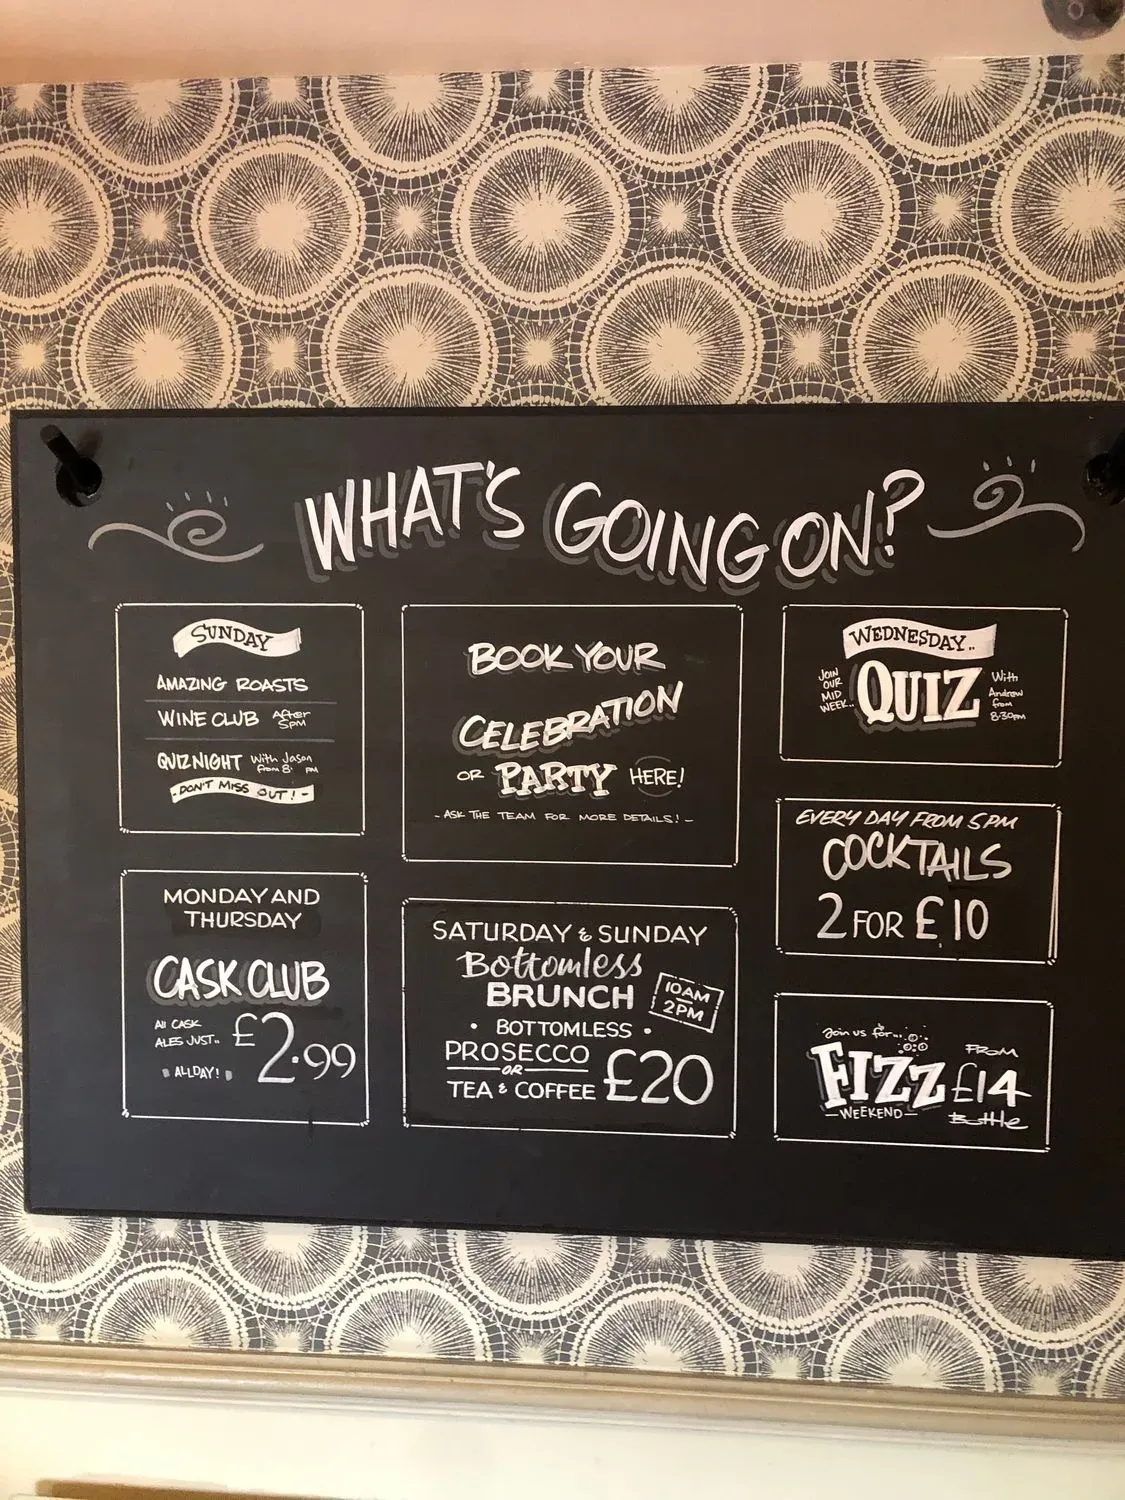 WHAT'S GOING ON?
SUNDAY
AMAZING ROASTS
WINE CLUB After 5pm
QUIZ NIGHT With Jason from 8 pm
- DON'T MISS OUT! -
MONDAY AND
THURSDAY
CASK CLUB
All CASK
ALES JUST..
£2.99
ALL DAY!
BOOK YOUR
CELEBRATION
OR PARTY HERE!
- ASK THE TEAM FOR MORE DETAILS! -
SATURDAY & SUNDAY
Bottomless
BRUNCH
10AM
2PM
• BOTTOMLESS •
PROSECCO
OR
TEA & COFFEE
£20
WEDNESDAY..
JOIN
OUR
MID
WEEK..
QUIZ
With
Andrew
from
8:30pm
EVERY DAY FROM 5PM
COCKTAILS
2 FOR £10
Join us for...
FIZZ
- WEEKEND -
FROM
£14
Bottle